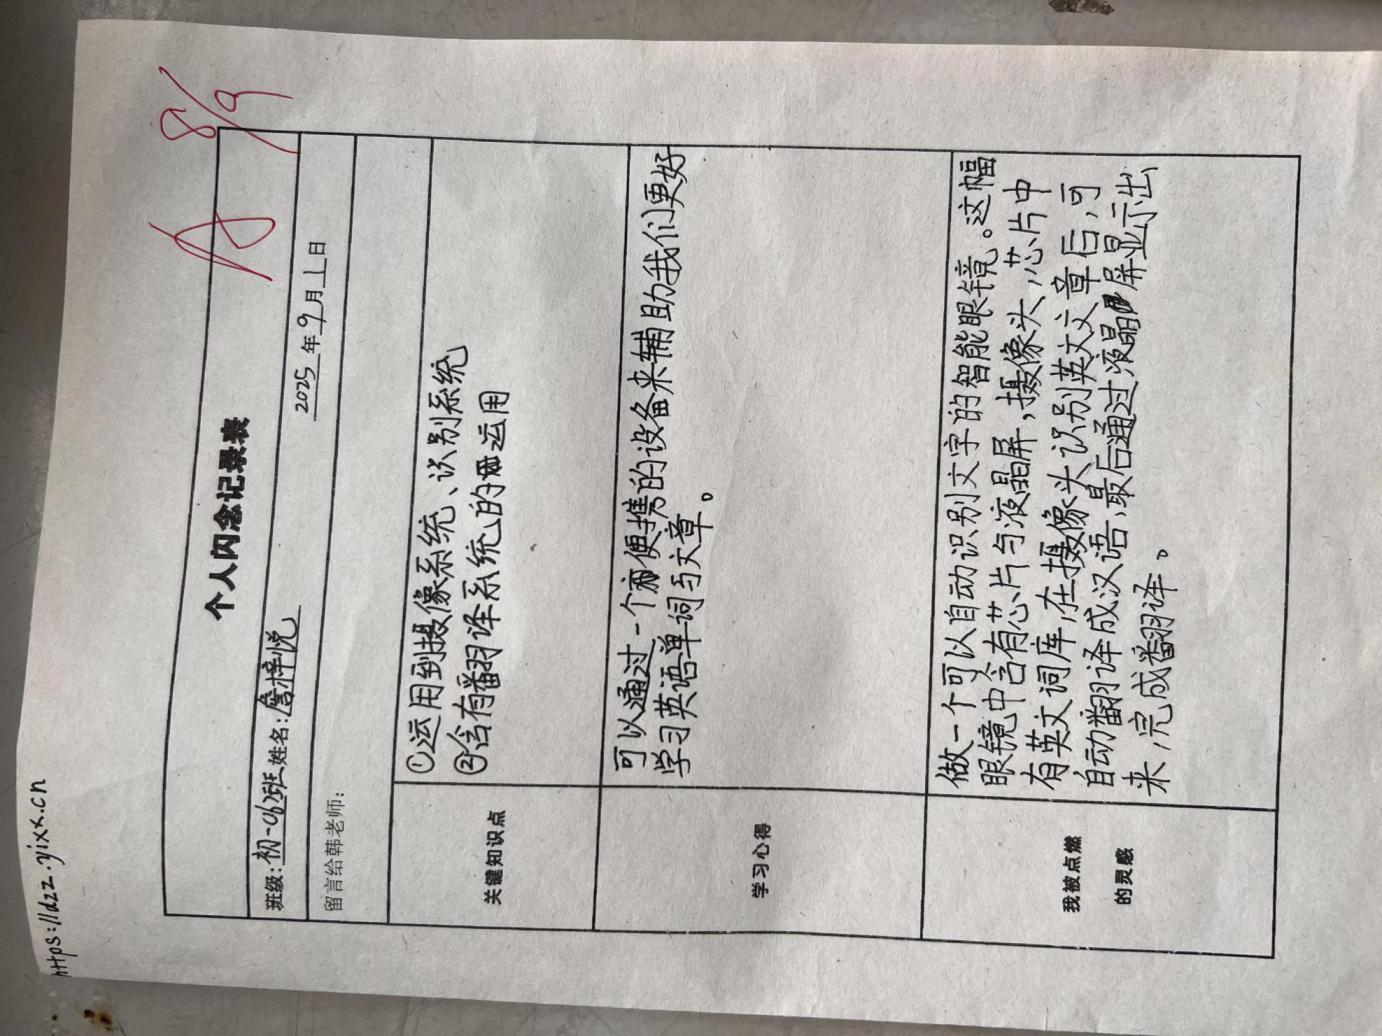 https://dzz.yixx.cn
A 8/9
个人闪念记录表
班级:初一0625班 姓名:詹梓悦
2025年9月11日
留言给韩老师:
关键知识点
①运用到摄像系统、识别系统
②含有翻译系统的运用
学习心得
可以通过一个便携的设备来辅助我们更好
学习英语单词与文章。
我被点燃
的灵感
做一个可以自动识别文字的智能眼镜。这幅
眼镜中含有芯片与液晶屏,摄像头,芯片中
有英文词库,在摄像头识别英文文章后,可
自动翻译成汉语,最后通过液晶屏显示出
来,完成翻译。